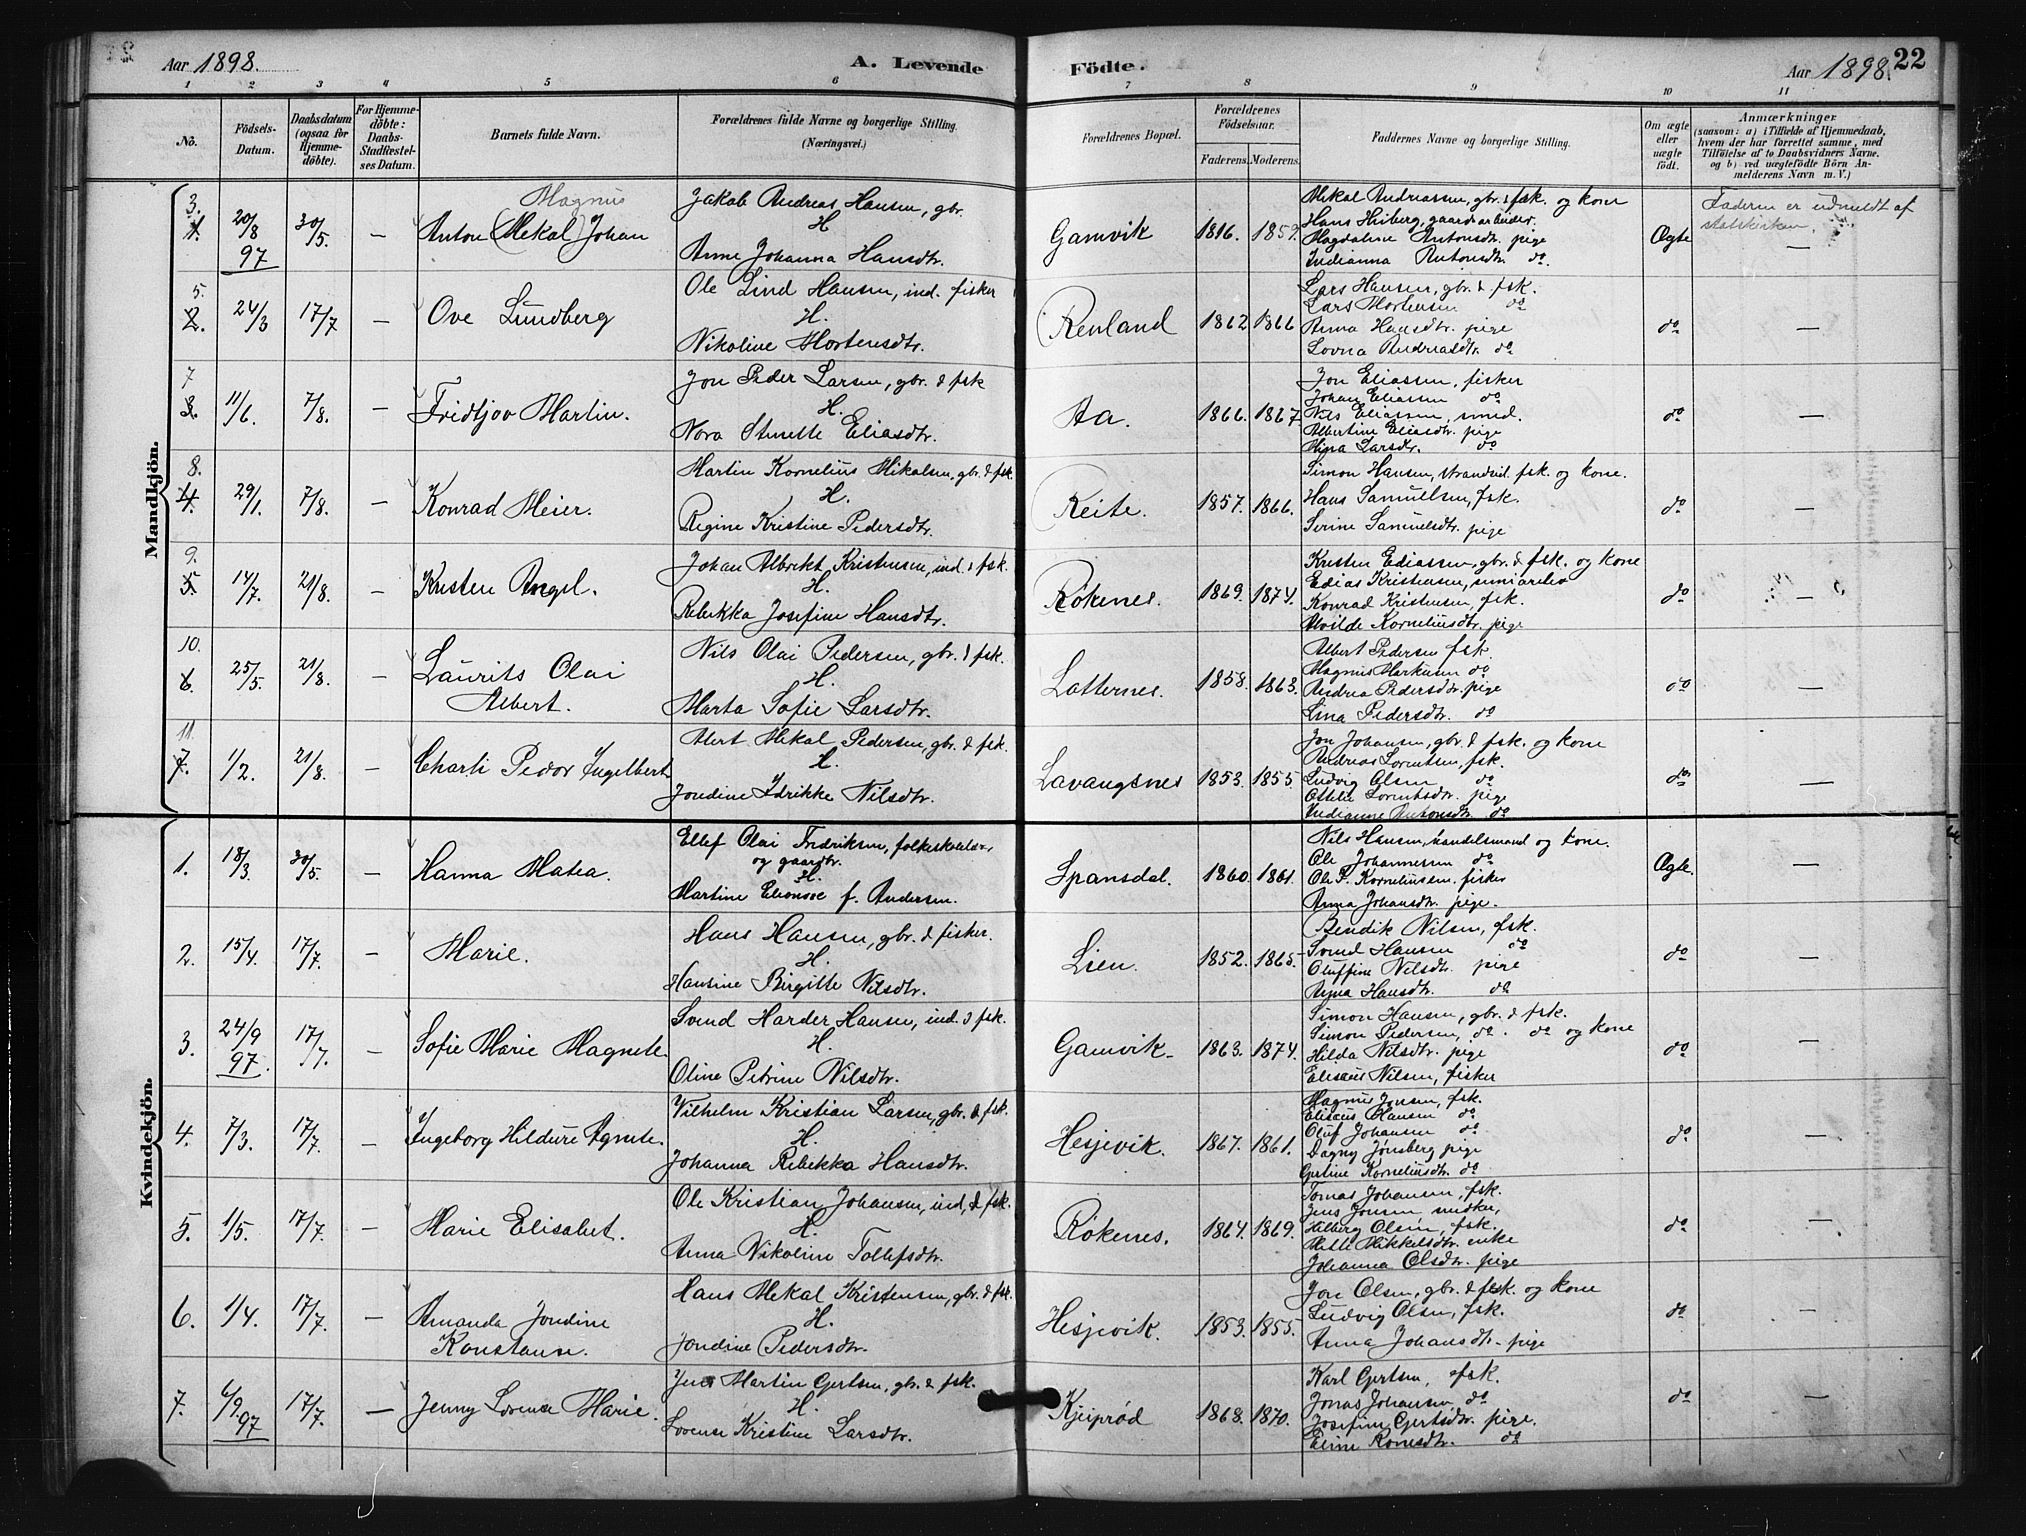 Aar 1898. A. Levende Födte. Aar 1898. 22
1 2 3 4 5 6 7 8 9 10 11
No.
Födsels-Datum.
Daabsdatum (ogsaa for Hjemme-döbte).
For Hjemme-döbte: Daabs-Stadfæstel-ses Datum.
Barnets fulde Navn.
Forældrenes fulde Navne og borgerlige Stilling. (Næringsvei.)
Forældrenes Bopæl.
Forældrenes Födselsaar.
Faderens. Moderens.
Faddernes Navne og borgerlige Stilling.
Om ægte eller uægte födt.
Anmærkninger
(saasom: a) i Tilfælde af Hjemmedaab, hvem der har forrettet samme, med Tilföielse af to Daabsvidners Navne, og b) ved uægtefödte Börn An-melderens Navn m. V.)
Mandkjön.
3. 1. 20/8 97 30/5. — Magnus
Anton (Mekal) Johan
Jakob Andreas Hansen, gbr.
H
Anne Johanna Hansdtr.
Gamvik 1816. 1857.
Mekal Andreassen, gbr. & fsk. og kone
Hans Hiberg, gaardsarbeider.
Magdalene Antonsdtr. pige
Indianna Antonsdtr. do.
Ægte
Faderen er udmeldt af statskirken.
—
5. 2. 24/3 17/7 — Ove Lundberg
Ole Lind Hansen, ind. fisker
H.
Nikoline Mortensdtr.
Renland 1862. 1866
Lars Hansen, gbr. & fsk.
Lars Mortensen do
Anna Hansdtr. pige
Lovna Andreasdtr. do
do —
7 3. 11/6. 7/8. — Fridtjov Martin.
Jon Peder Larsen, gbr. & fsk
H.
Nora Stinette Eliasdtr.
Aa. 1866. 1867
Jon Eliassen, fisker
Johan Eliassen do
Nils Eliassen, smed.
Albertine Eliasdtr. pige
Mina Larsdtr. do
do —
8. 4. 29/1. 7/8. — Konrad Meier.
Martin Kornelius Mikalsen, gbr. & fsk.
H.
Regine Kristine Pedersdtr.
Reite. 1857. 1866.
Simon Hansen, strandsid. fsk. og kone.
Hans Samuelsen, fsk.
Serine Samuelsdtr. pige
do —
9. 5. 14/7. 21/8. — Kristen Angel.
Johan Albrekt Kristensen, ind. & fsk.
H.
Rebekka Josefine Hansdtr.
Røkenes. 1869. 1874.
Kristen Ediassen, gbr. & fsk. og kone
Edias Kristensen, seminarelev
Konrad Kristensen, fsk.
Alvilde Korneliusdtr. pige
do —
10. 6. 25/5. 21/8. — Laurits Olai
Albert.
Nils Olai Pedersen, gbr. & fsk.
H.
Marta Sofie Larsdtr.
Lotternes. 1858. 1863.
Albert Pedersen fsk.
Magnus Markusen do
Andrea Pedersdtr. pige
Lina Pedersdtr. do
do —
11. 7. 1/2. 21/8. — Charli Peder Ingelbert
Alert Mekal Pedersen, gbr. & fsk.
H.
Jondine Idrikke Nilsdtr.
Lavangsnes 1853. 1855.
Jon Johansen, gbr. & fsk. og kone
Andreas Lorentsen, fsk.
Ludvig Olsen do
Ottelie Lorentsdtr. pige
Indianne Antonsdtr. do
do —
Kvindekjön.
1. 18/3. 30/5. — Hanna Matea.
Ellef Olai Fredriksen, folkeskolelær.,
og gaardbr.
H.
Martine Elionore f. Andersen.
Spansdal. 1860. 1861.
Nils Hansen, handelsmand og kone.
Ole Johannesen do
Ole F. Korneliussen fisker
Anna Johansdtr. pige.
Ægte. —
2. 15/4. 17/7. — Marie.
Hans Hansen, gbr. & fisker.
H.
Hansine Birgitte Nilsdtr.
Lien. 1852. 1865.
Bendik Nilsen, fsk.
Svend Hansen do
Oluffine Nilsdtr. pige
Anna Hansdtr. do
do —
3. 24/9 97. 17/7. — Sofie Marie Magnete.
Svend Harder Hansen, ind. & fsk.
H.
Oline Petrine Nilsdtr.
Gamvik. 1863. 1874.
Simon Hansen, gbr. & fsk.
Simon Pedersen, do. do og kone
Hilda Nilsdtr. pige
Eliseus Nilsen, fisker
do —
4. 7/3. 17/7. — Ingeborg Hildure Agnete.
Vilhelm Kristian Larsen, gbr. & fsk.
H.
Johanna Rebekka Hansdtr.
Hesjevik. 1867. 1861.
Magnus Jonsen, fsk.
Eliseus Hansen do
Oluf Johansen do
Dagny Jönsberg pige
Gertine Korneliusdtr. do
do —
5. 1/5. 17/7. — Marie Elisabet.
Ole Kristian Johansen, ind, & fsk.
H.
Anna Nikoline Tollefsdtr.
Røkenes. 1864. 1869.
Tomas Johansen, fsk.
Jens Jonsen snedker,
Hilberg Olsen, fsk.
Mette Mikkelsdtr. enke
Johanna Olsdtr. pige
do —
6. 1/4. 17/7. — Amanda Jondine
Konstanse.
Hans Mekal Kristensen, gbr. & fsk.
H.
Jondine Pedersdtr.
Hesjevik. 1853. 1855.
Jon Olsen, gbr. & fsk. og kone
Ludvig Olsen, fsk.
Anna Johansdtr. pige
do —
7. 6/9. 97 17/7. — Jenny Lorense Marie.
Jens Martin Gertsen, gbr. & fsk.
H.
Lorense Kristine Larsdtr.
Kjeiprød 1868. 1870.
Karl Gertsen, fsk.
Jonas Johansen, do
Josefine Gertsdtr. pige.
Eline Ronesdtr. do
do —